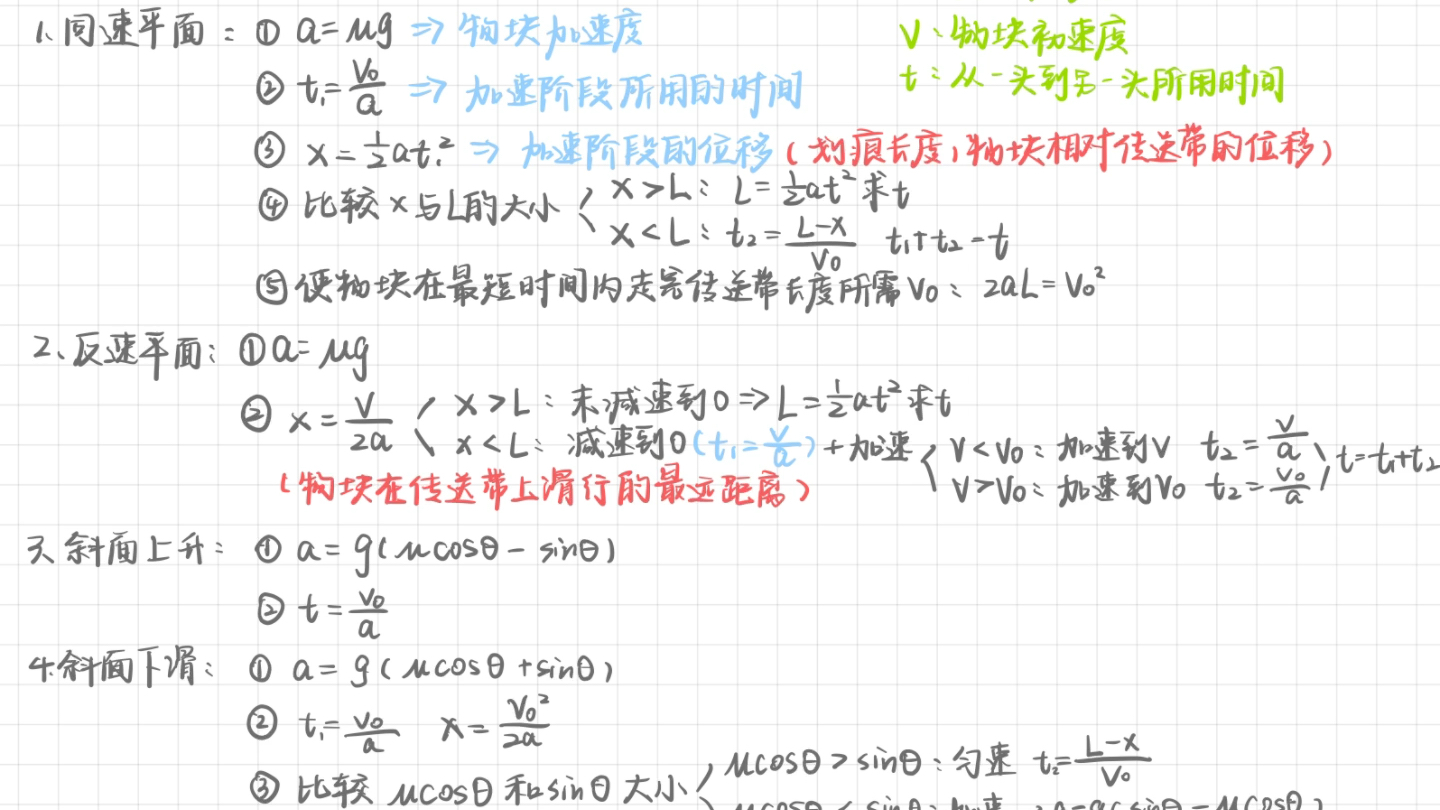 1、同速平面：① a=μg ⇒ 物块加速度
V：物块初速度
② t₁=V₀/a ⇒ 加速阶段所用的时间
t：从一头到另一头所用时间
③ x=½at₁² ⇒ 加速阶段的位移（划痕长度，物块相对传送带的位移）
④ 比较x与L的大小 x>L：L=½at²求t
x<L：t₂=(L-x)/V₀ t₁+t₂=t
⑤ 使物块在最短时间内走完传送带长度所需V₀：2aL=V₀²
2、反速平面：① a=μg
② x=V/2a x>L：未减速到0⇒L=½at²求t
x<L：减速到0(t₁=V/a)+加速 V<V₀：加速到V t₂=V/a t=t₁+t₂
V>V₀：加速到V₀ t₂=V₀/a
（物块在传送带上滑行的最远距离）
3、斜面上升：① a=g(μcosθ-sinθ)
② t=V₀/a
4、斜面下滑：① a=g(μcosθ+sinθ)
② t₁=V₀/a x=V₀²/2a
③ 比较μcosθ和sinθ大小 μcosθ>sinθ：匀速 t₂=(L-x)/V₀